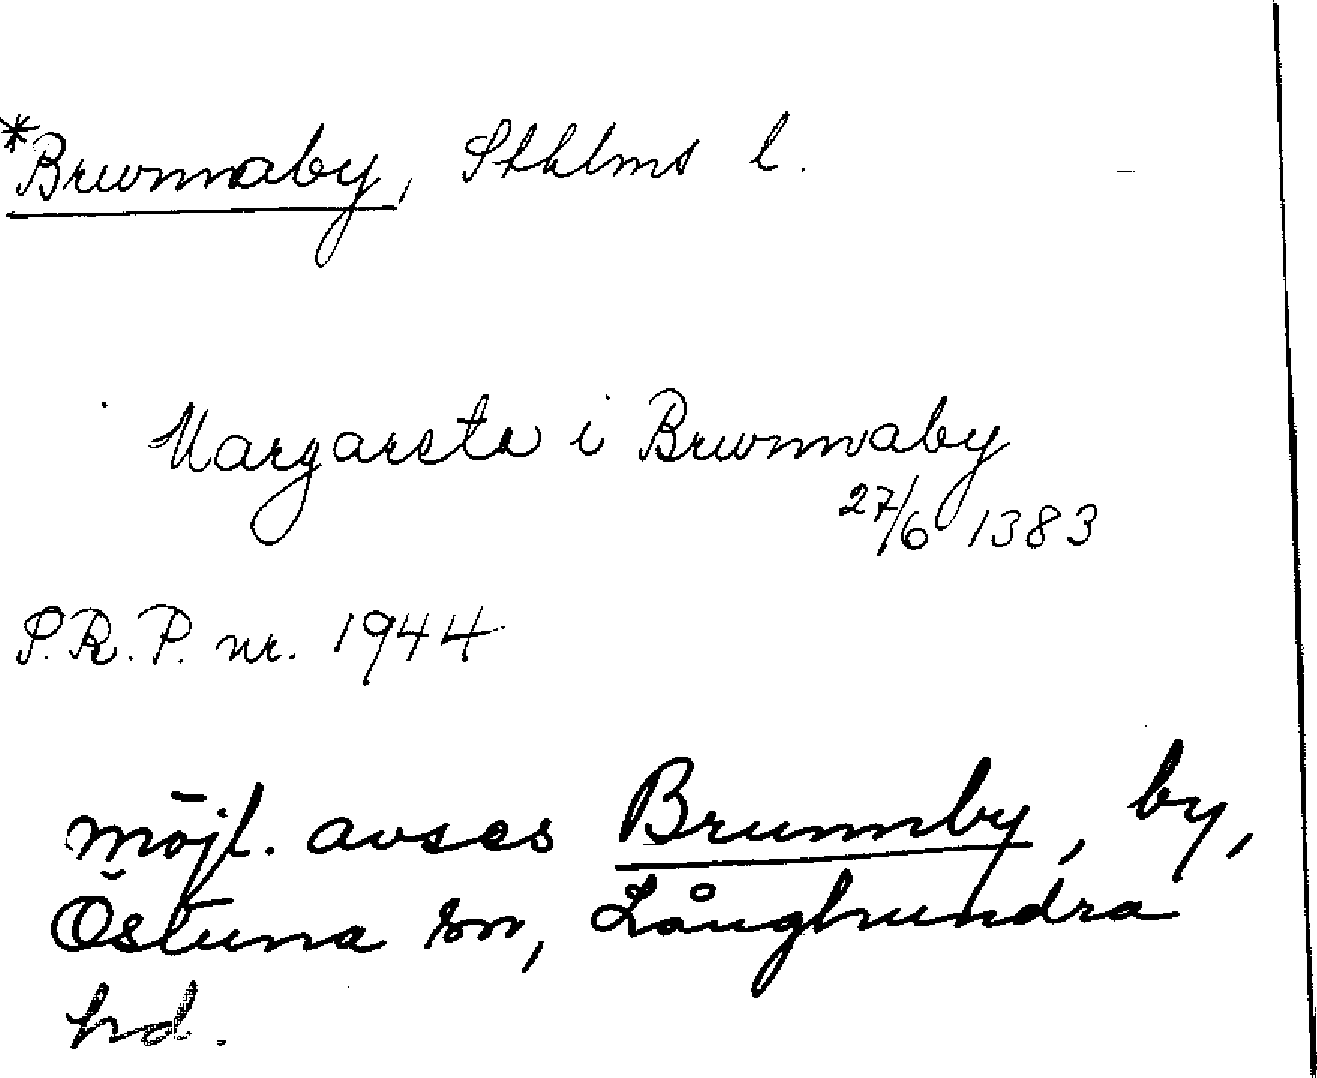 *Brwnnaby, Sthlms l.
Margareta i Brwnnaby
27/6 1383
S.R.P. nr. 1944
möjl. avses Brunnby, by,
Östuna sn, Långhundra
hd.